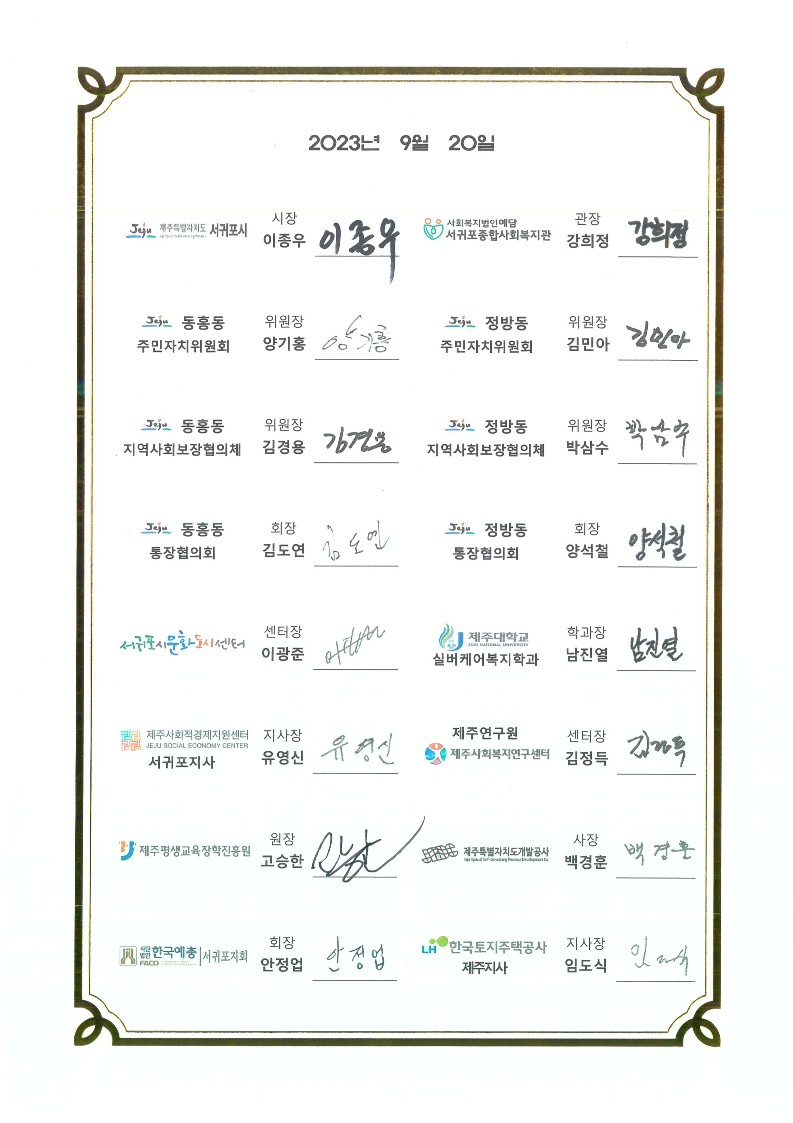 2023년 9월 20일
Jeju 제주특별자치도 서귀포시 시장 이종우 이종우
사회복지법인예담 서귀포종합사회복지관 관장 강희정 강희정
Jeju 동홍동 주민자치위원회 위원장 양기홍 양기홍
Jeju 정방동 주민자치위원회 위원장 김민아 김민아
Jeju 동홍동 지역사회보장협의체 위원장 김경용 김경용
Jeju 정방동 지역사회보장협의체 위원장 박삼수 박삼수
Jeju 동홍동 통장협의회 회장 김도연 김도연
Jeju 정방동 통장협의회 회장 양석철 양석철
서귀포시문화도시센터 센터장 이광준
제주대학교 JEJU NATIONAL UNIVERSITY 실버케어복지학과 학과장 남진열 남진열
제주사회적경제지원센터 JEJU SOCIAL ECONOMY CENTER 서귀포지사 지사장 유영신 유영신
제주연구원 제주사회복지연구센터 센터장 김정득 김정득
제주평생교육장학진흥원 원장 고승한
제주특별자치도개발공사 사장 백경훈 백경훈
사단법인 한국예총 FACO 서귀포지회 회장 안정업 안정업
LH 한국토지주택공사 제주지사 지사장 임도식 임도식